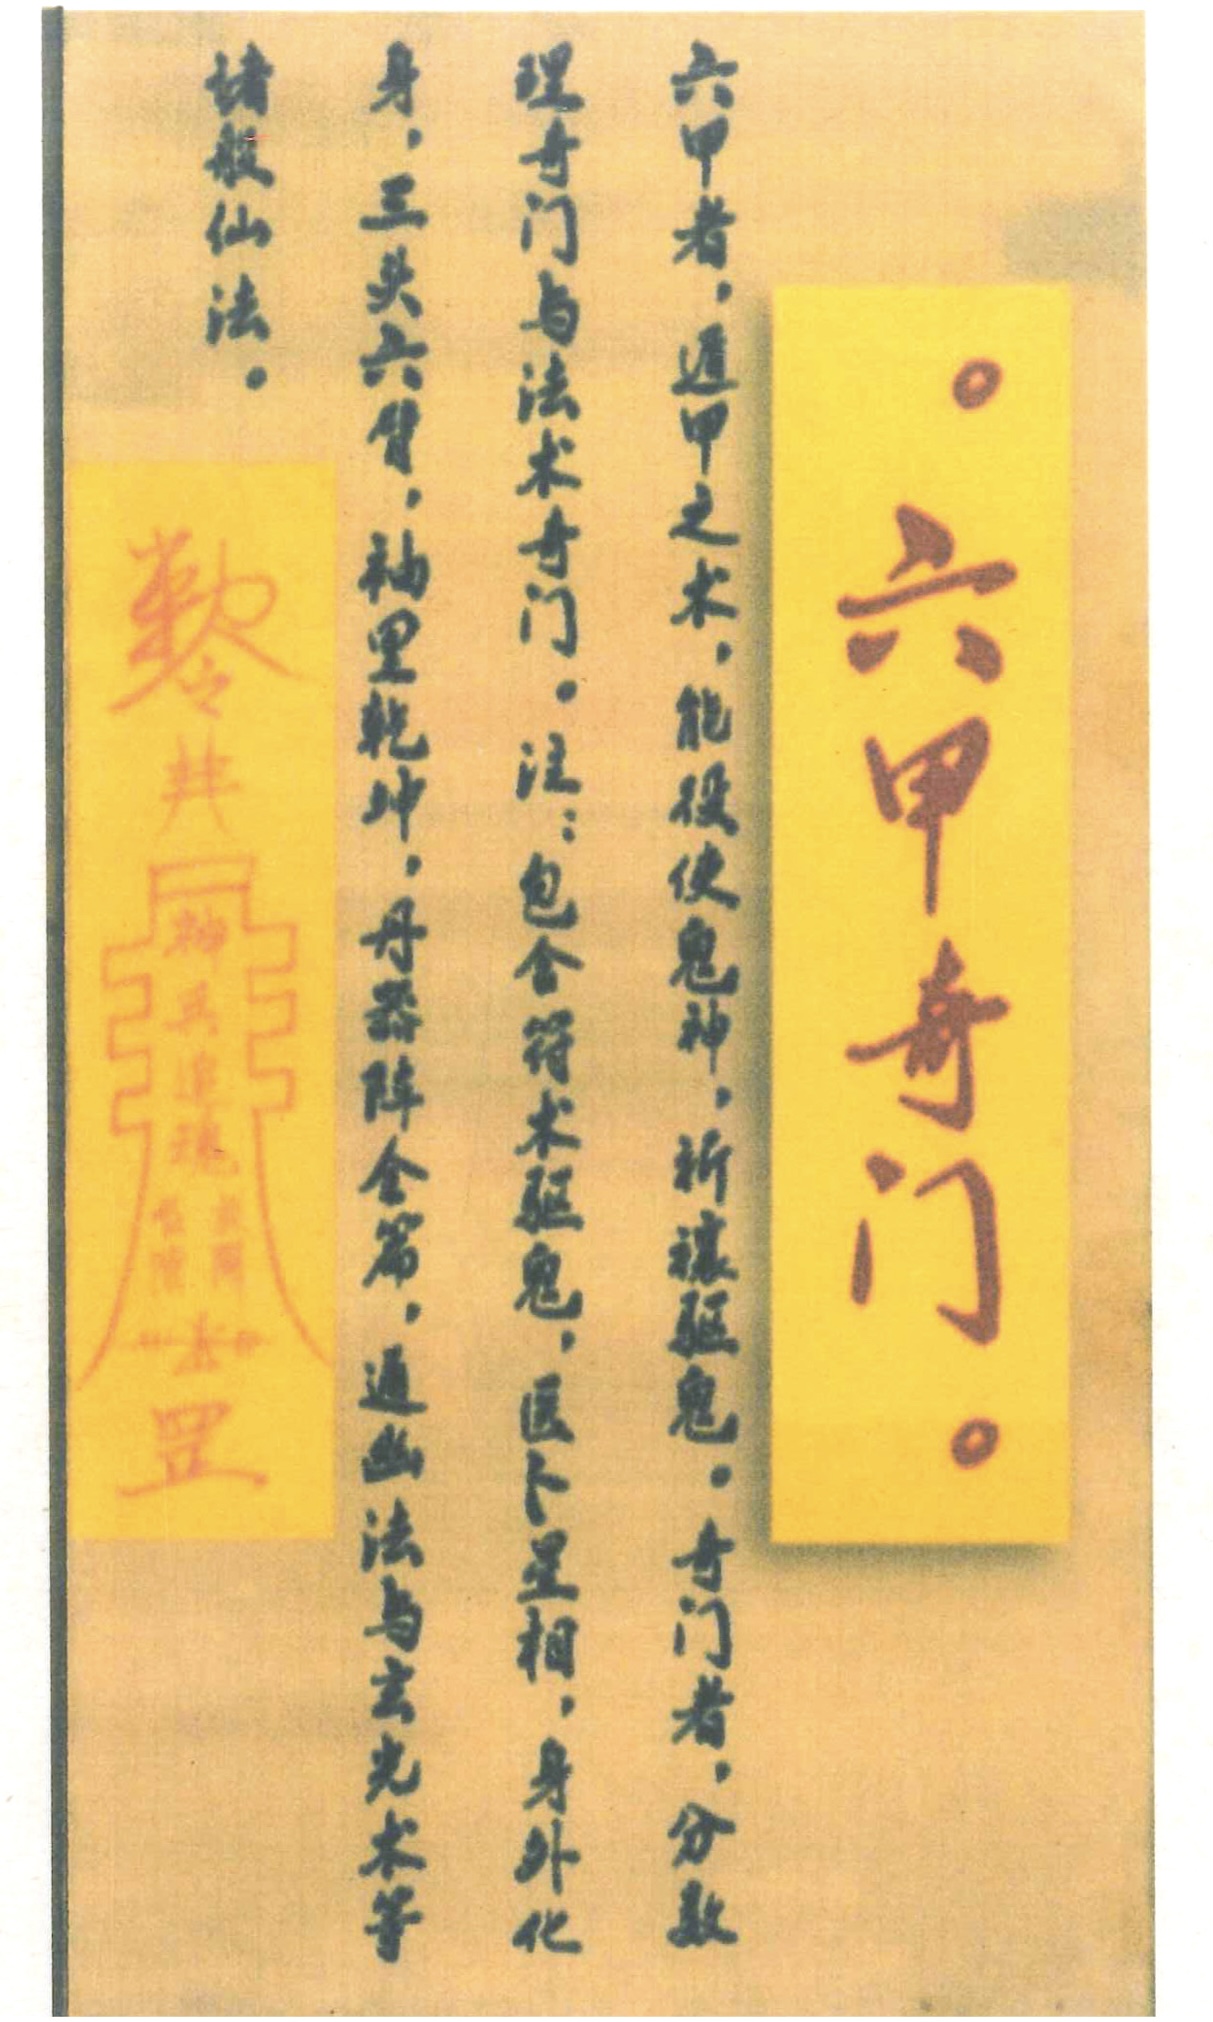 。六甲奇门。
六甲者，遁甲之术，能役使鬼神，祈禳驱鬼。奇门者，分数
理奇门与法术奇门。注：包含符术驱鬼，医卜星相，身外化
身，三头六臂，袖里乾坤，丹器阵全篇，通幽法与玄光术等
诸般仙法。
神兵追魂
罡